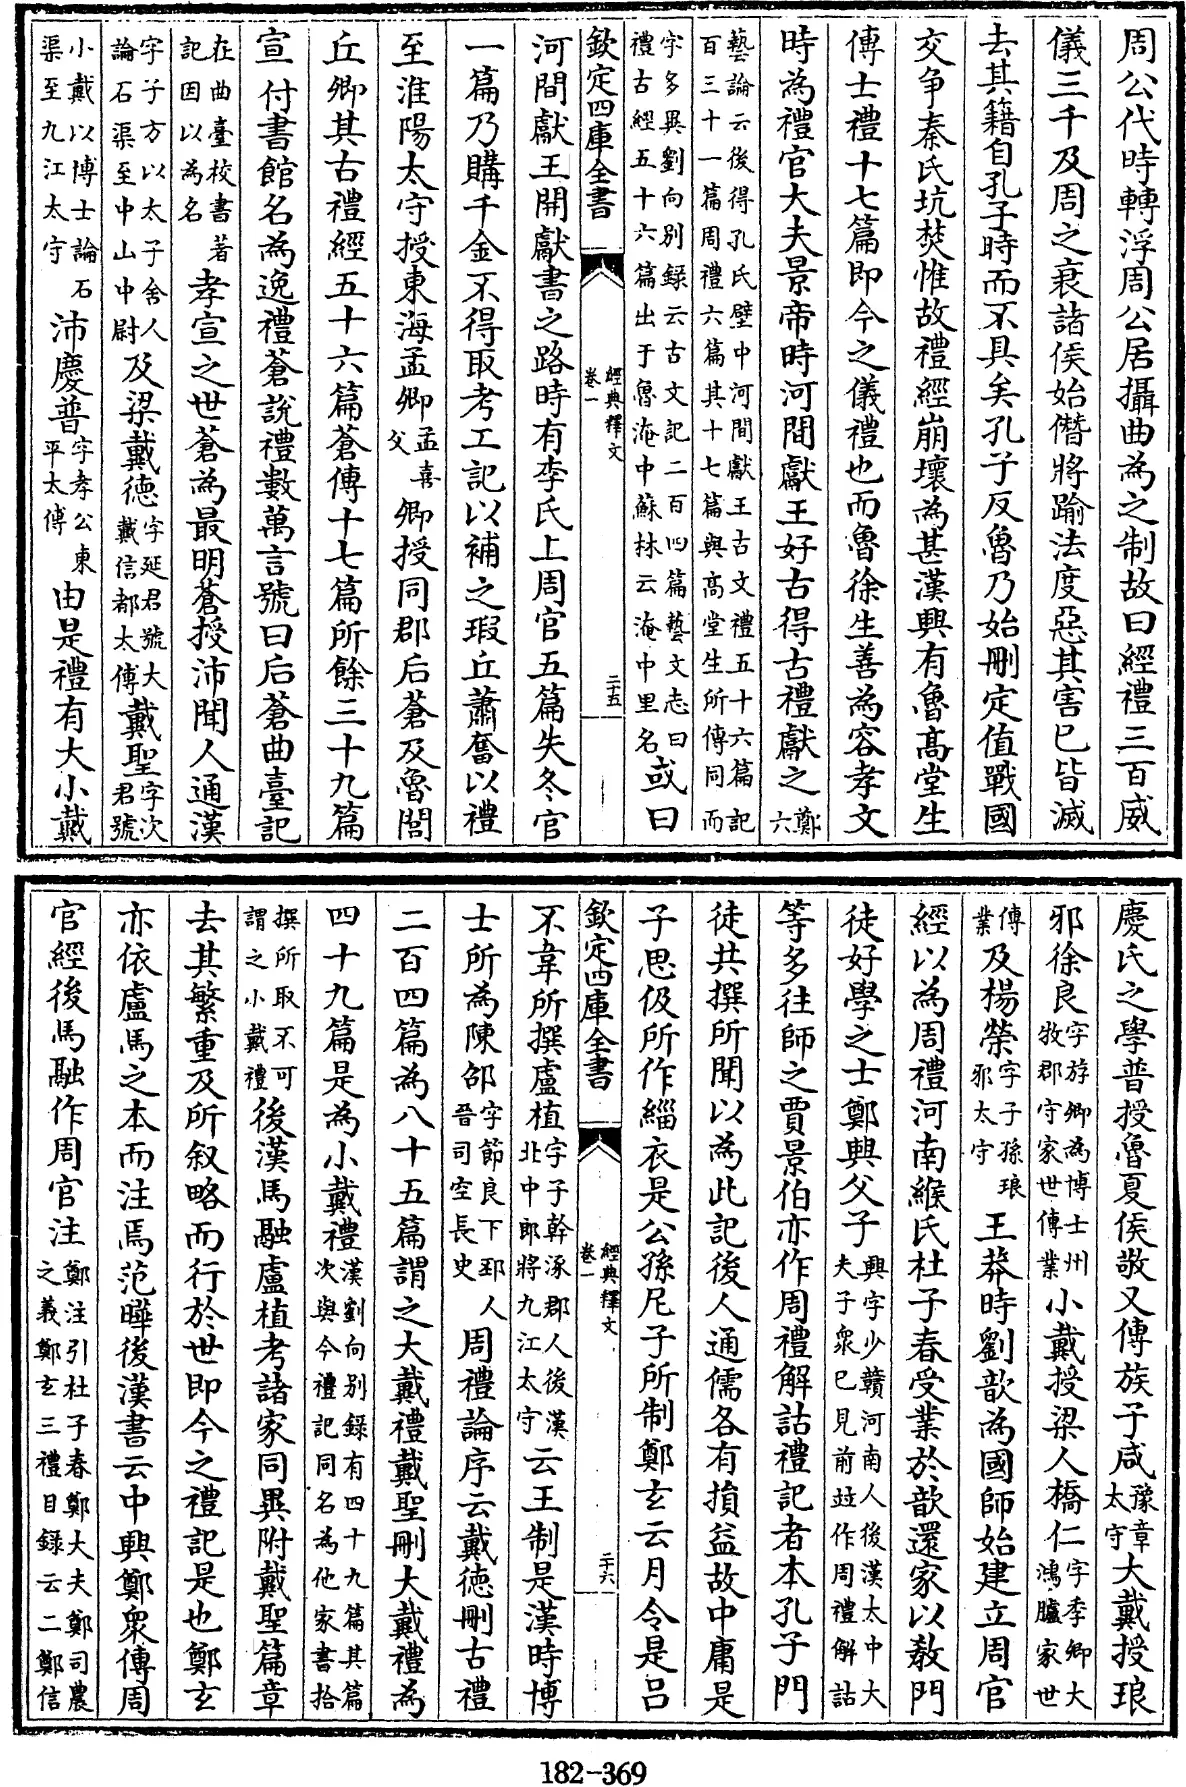 周公代時轉浮周公居攝曲為之制故曰經禮三百威
儀三千及周之衰諸侯始僭將踰法度惡其害已皆滅
去其籍自孔子時而不具矣孔子反魯乃始刪定值戰國
交争秦氏坑焚惟故禮經崩壞為甚漢興有魯髙堂生
傳士禮十七篇即今之儀禮也而魯徐生善為容孝文
時為禮官大夫景帝時河間獻王好古得古禮獻之鄭六
藝論云後得孔氏壁中河間獻王古文禮五十六篇記
百三十一篇周禮六篇其十七篇與髙堂生所傳同而
字多異劉向别録云古文記二百四篇藝文志曰
禮古經五十六篇出于魯淹中蘇林云淹中里名或曰
欽定四庫全書
經典釋文
卷一
二十五
河間獻王開獻書之路時有李氏上周官五篇失冬官
一篇乃購千金不得取考工記以補之瑕丘蕭奮以禮
至淮陽太守授東海孟卿孟喜父卿授同郡后蒼及魯閭
丘卿其古禮經五十六篇蒼傳十七篇所餘三十九篇
宣付書館名為逸禮蒼説禮數萬言號曰后蒼曲臺記
在曲臺校書著
記因以為名孝宣之世蒼為最明蒼授沛聞人通漢
字子方以太子舍人
論石渠至中山中尉及梁戴德字延君號大戴信都太傅戴聖字次君號
小戴以博士論石
渠至九江太守沛慶普字孝公東平太傅由是禮有大小戴
慶氏之學普授魯夏侯敬又傳族子咸豫章太守大戴授琅
邪徐良字游卿為博士州牧郡守家世傳業小戴授梁人橋仁字季卿大鴻臚家世
傳業及楊榮字子孫琅邪太守王莽時劉歆為國師始建立周官
經以為周禮河南緱氏杜子春受業於歆還家以教門
徒好學之士鄭興父子興字少贛河南人後漢太中大夫子衆已見前竝作周禮解詁
等多往師之賈景伯亦作周禮解詁禮記者本孔子門
徒共撰所聞以為此記後人通儒各有損益故中庸是
子思伋所作緇衣是公孫尼子所制鄭玄云月令是吕
欽定四庫全書
經典釋文
卷一
二十六
不韋所撰盧植字子幹涿郡人後漢北中郎將九江太守云王制是漢時博
士所為陳邵字節良下邳人晉司空長史周禮論序云戴徳刪古禮
二百四篇為八十五篇謂之大戴禮戴聖刪大戴禮為
四十九篇是為小戴禮漢劉向别録有四十九篇其篇次與今禮記同名為他家書拾
撰所取不可
謂之小戴禮後漢馬融盧植考諸家同異附戴聖篇章
去其繁重及所叙略而行於世即今之禮記是也鄭玄
亦依盧馬之本而注焉范曄後漢書云中興鄭衆傳周
官經後馬融作周官注鄭注引杜子春鄭大夫鄭司農之義鄭玄三禮目録云二鄭信
182-369